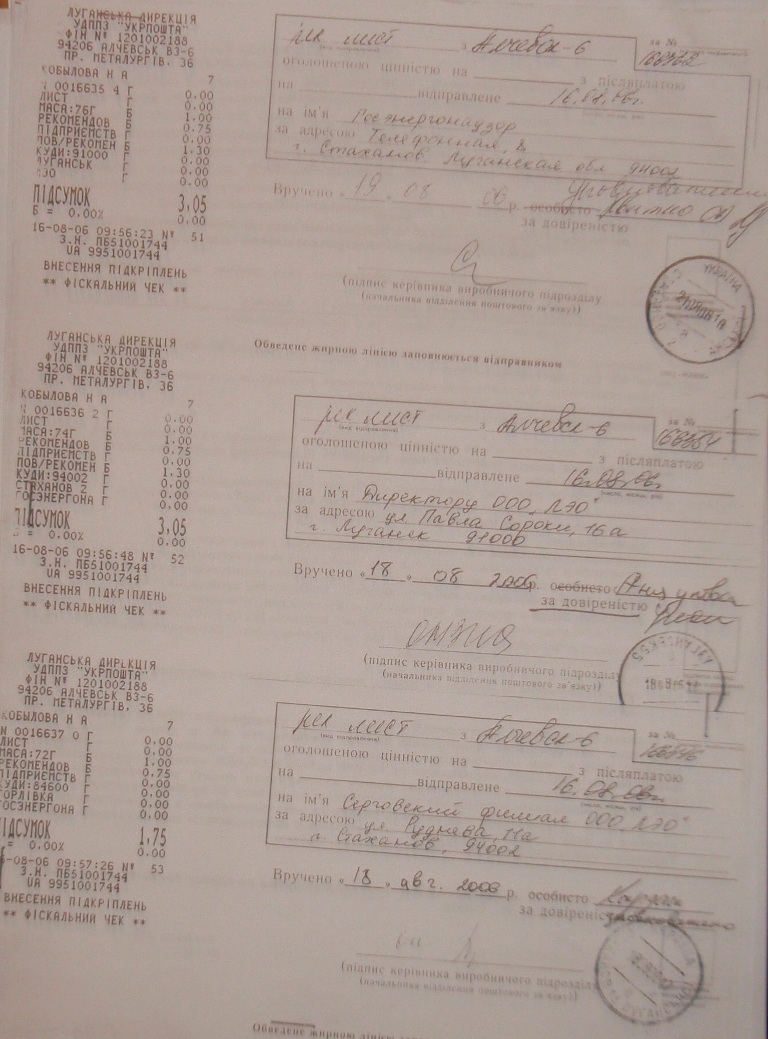 ЛУГАНСЬКА ДИРЕКЦІЯ
УДППЗ "УКРПОШТА"
ФІН № 1201002188
94206 АЛЧЕВСЬК ВЗ-6
ПР. МЕТАЛУРГІВ, 36
КОБЫЛОВА Н А 7
N 0016635 4 Г 0.00
ЛИСТ Г 0.00
МАСА:76Г Б 1.00
РЕКОМЕНДОВ Б 0.75
ПІДПРИЄМСТВ Г 0.00
ПОВ/РЕКОМЕН Б 1.30
КУДИ:91000 Г 0.00
ЛУГАНСЬК Г 0.00
ЛЭО Г 0.00
ПІДСУМОК 3,05
Б = 0.00% 0.00
16-08-06 09:56:23 № 51
З.Н. ПБ51001744
UA 9951001744
ВНЕСЕННЯ ПІДКРІПЛЕНЬ
** ФІСКАЛЬНИЙ ЧЕК **
рек лист з Алчевск-6 за №
оголошеною цінністю на з післяплатою
на відправлене 16.08.06г.
на ім'я Госэнергонадзор
за адресою Телефонная, 8
г. Стаханов. Луганская обл 94002
Вручено „19 08 06 р. особисто
за довіреністю
(підпис керівника виробничого підрозділу
(начальника відділення поштового зв'язку))
УКРАЇНА
Обведене жирною лінією заповнюється відправником
ЛУГАНСЬКА ДИРЕКЦІЯ
УДППЗ "УКРПОШТА"
ФІН № 1201002188
94206 АЛЧЕВСЬК ВЗ-6
ПР. МЕТАЛУРГІВ, 36
КОБЫЛОВА Н А 7
N 0016636 2 Г 0.00
ЛИСТ Г 0.00
МАСА:74Г Б 1.00
РЕКОМЕНДОВ Б 0.75
ПІДПРИЄМСТВ Г 0.00
ПОВ/РЕКОМЕН Б 1.30
КУДИ:94002 Г 0.00
СТАХАНОВ 2 Г 0.00
ГОСЭНЕРГОНА Г 0.00
ПІДСУМОК 3,05
Б = 0.00% 0.00
16-08-06 09:56:48 № 52
З.Н. ПБ51001744
UA 9951001744
ВНЕСЕННЯ ПІДКРІПЛЕНЬ
** ФІСКАЛЬНИЙ ЧЕК **
рек лист з Алчевск-6 за №
оголошеною цінністю на з післяплатою
на відправлене 16.08.06г.
на ім'я Директору ООО „ЛЭО"
за адресою ул Павла Сороки, 16а
г. Луганск 91000
Вручено „18 „ 08 2006р. особисто
за довіреністю
(підпис керівника виробничого підрозділу
(начальника відділення поштового зв'язку))
ЛУГАНСЬКА ДИРЕКЦІЯ
УДППЗ "УКРПОШТА"
ФІН № 1201002188
94206 АЛЧЕВСЬК ВЗ-6
ПР. МЕТАЛУРГІВ, 36
КОБЫЛОВА Н А 7
N 0016637 0 Г 0.00
ЛИСТ Г 0.00
МАСА:72Г Б 1.00
РЕКОМЕНДОВ Б 0.75
ПІДПРИЄМСТВ Г 0.00
КУДИ:84600 Г 0.00
ГОРЛІВКА Г 0.00
ГОСЭНЕРГОНА Г 0.00
ПІДСУМОК 1,75
= 0.00% 0.00
-08-06 09:57:26 № 53
З.Н. ПБ51001744
UA 9951001744
ВНЕСЕННЯ ПІДКРІПЛЕНЬ
** ФІСКАЛЬНИЙ ЧЕК **
рек лист з Алчевск-6 за №
оголошеною цінністю на з післяплатою
на відправлене 16.08.06г.
на ім'я Серговский филиал ООО „ЛЭО"
за адресою ул. Руднева, 11а
г. Стаханов, 94002
Вручено „18 „ авг. 2006 р. особисто
за довіреністю
(підпис керівника виробничого підрозділу
(начальника відділення поштового зв'язку))
Обведене жирною лінією